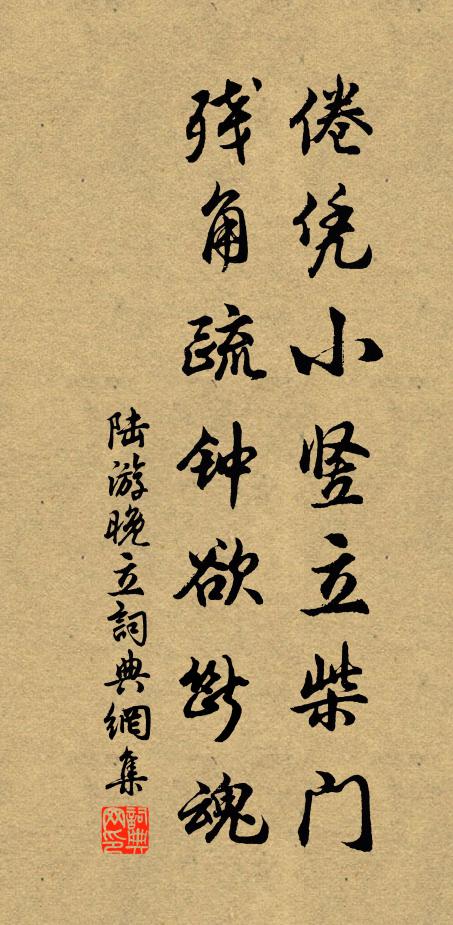 倦凭小竖立柴门
残角疏钟欲断魂
陆游晚立詞典網集
詞典网印